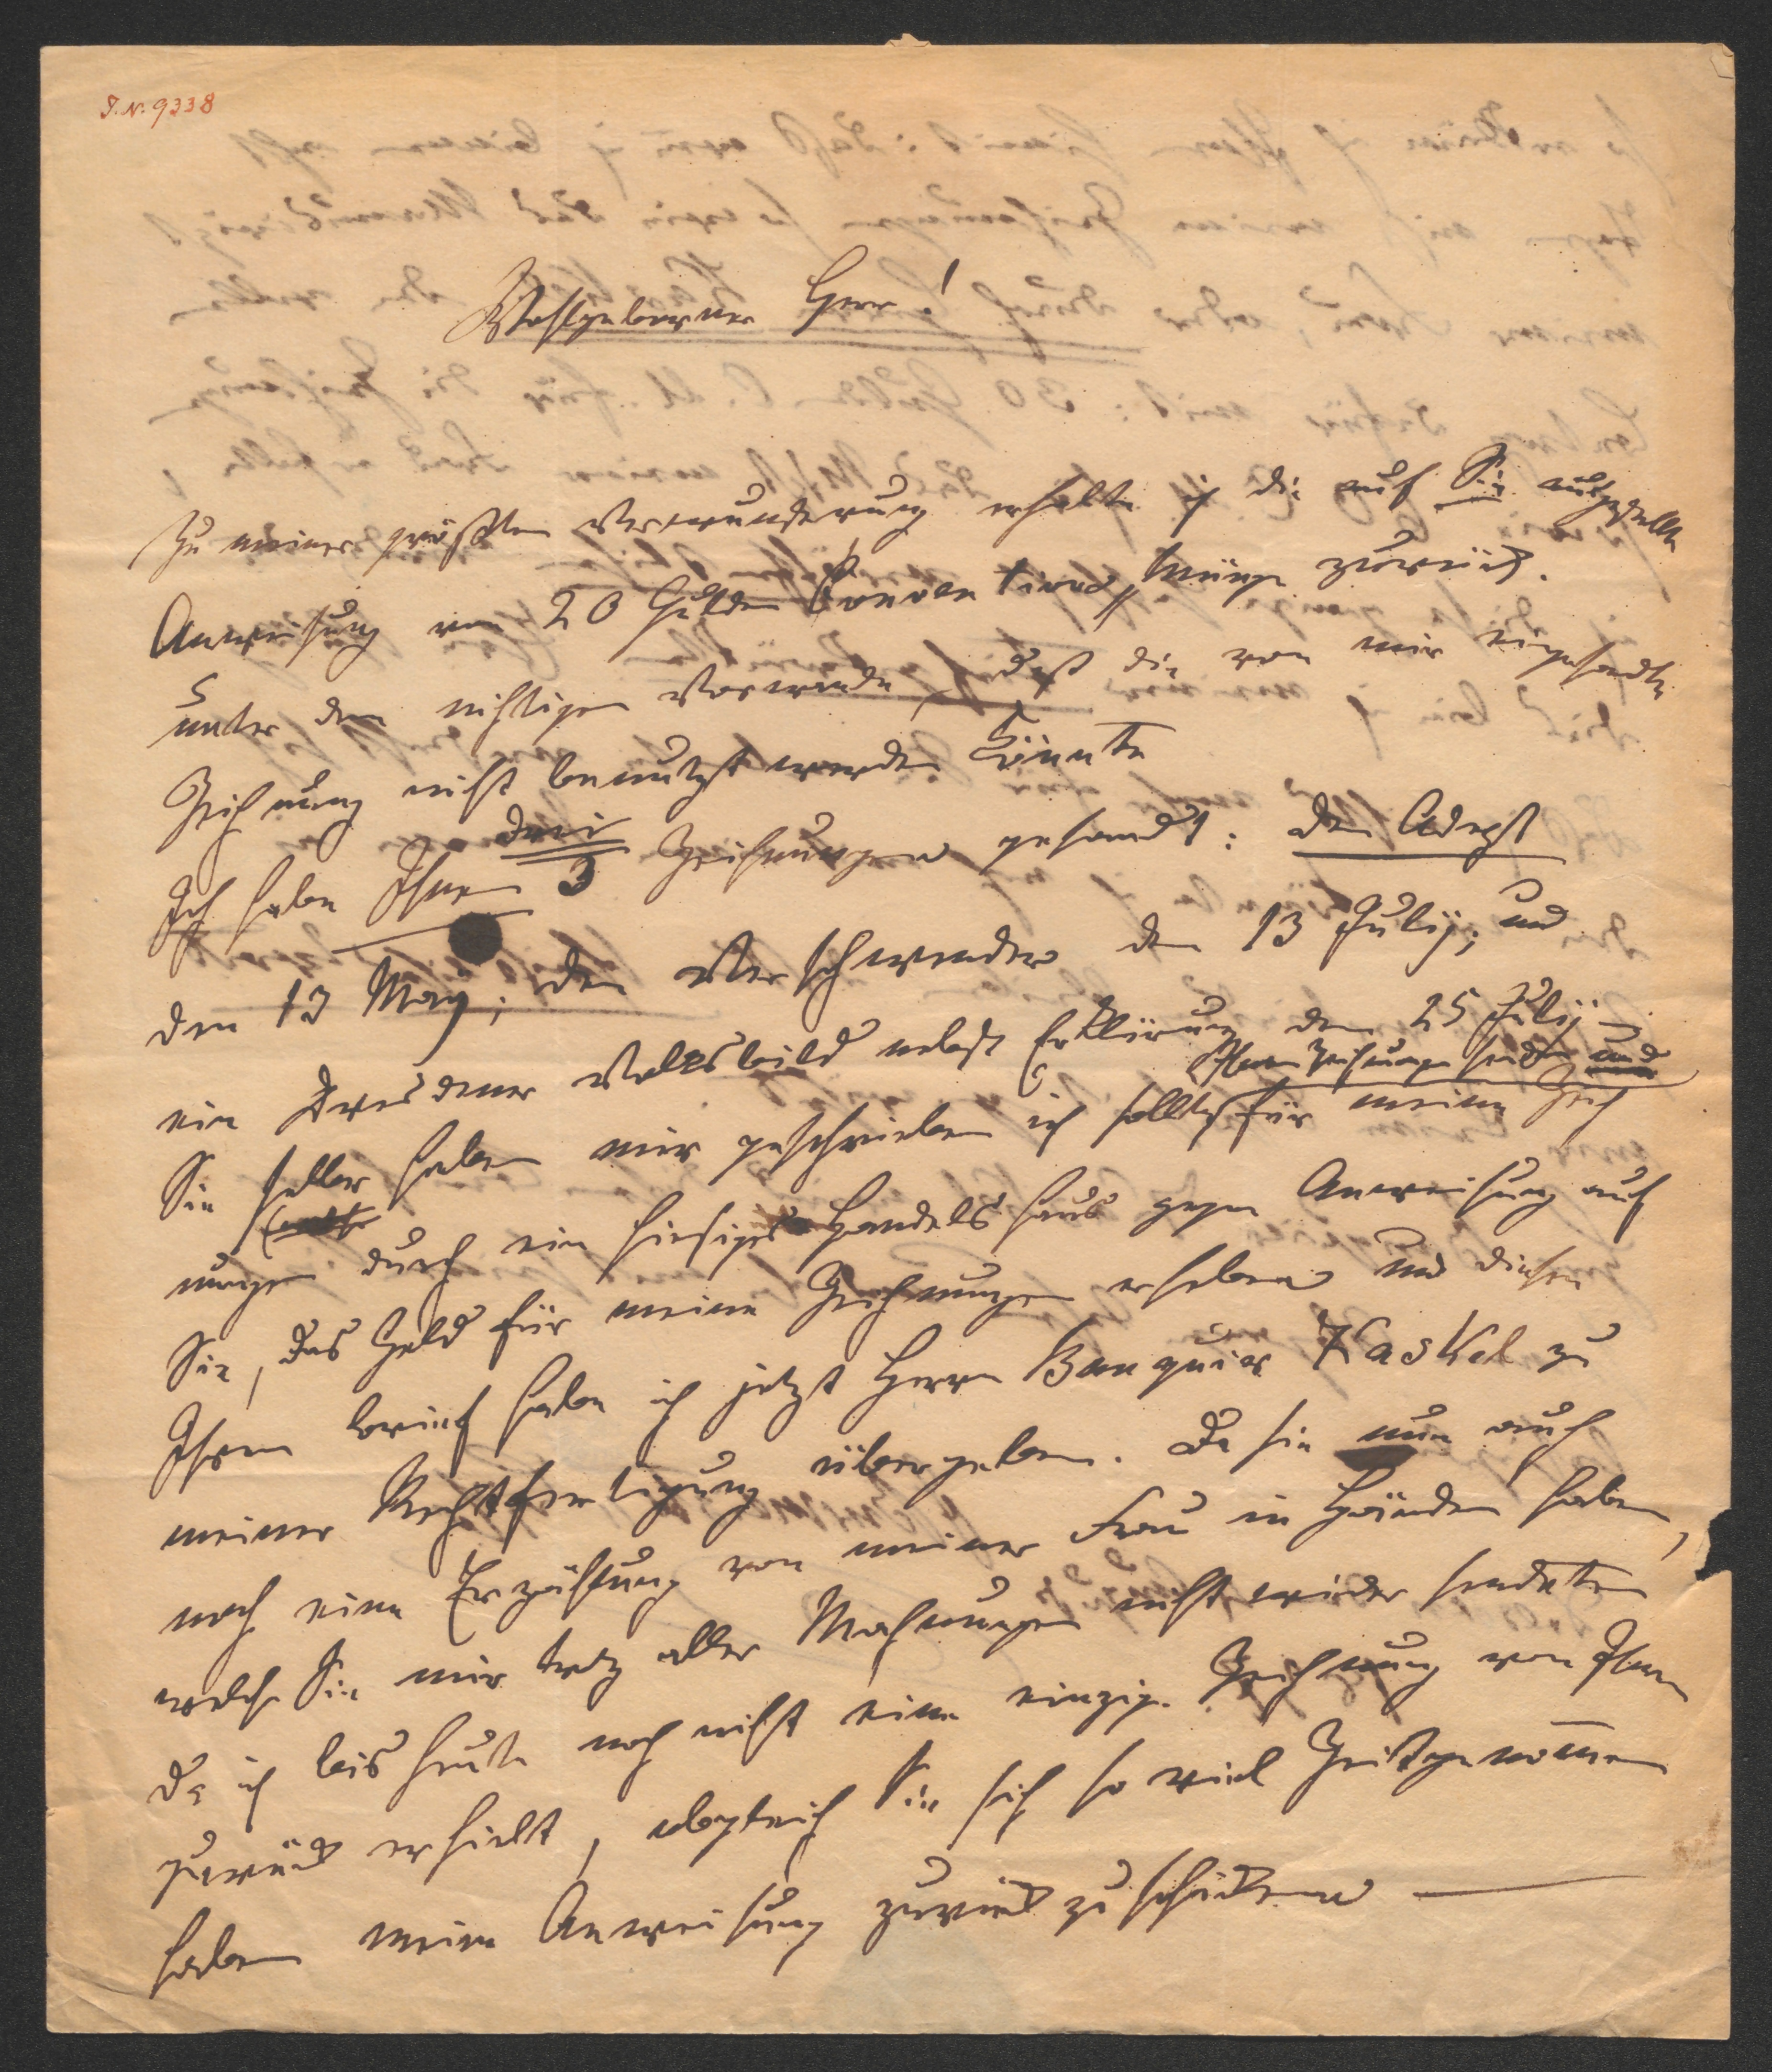 I.N. 9338
Wohlgeborner Herr!
Zu meiner größten Verwunderung erhalte ich die auf Sie ausgestellte
Anweisung von 20 Gulden Conventions Münze zurück.
unter dem nichtigen Vorwande, daß die von mir eingesandte
Zeichnung nicht benutzt werden könnte
drei
Ich habe Ihnen 3 Zeichnungen gesandt: den Adept
den 13 May; den Verschwender den 13 Julij; und
ein Dresdener Volksbild nebst Erklärung den 25 Julij
Ihnen Zeichnungen senden und
Sie selber haben mir geschrieben ich sollte für meine Zeich
nungen durch ein hiesiges Handelshaus gegen Anweisung auf
Sie, das Geld für meine Zeichnungen erheben und diesen
Ihren brief habe ich jetzt Herrn Banquier Kaskel zu
meiner Rechtfertigung übergeben. Da sie nun auch
noch eine Erzählung von meiner Frau in Händen haben,
welche Sie mir trotz aller Mahnungen nicht wieder sendeten
da ich bis heute noch nicht eine einzige Zeichnung von Ihnen
zurück erhielt, obgleich Sie sich so viel Zeit genommen
haben meine Anweisung zurück zu schicken —